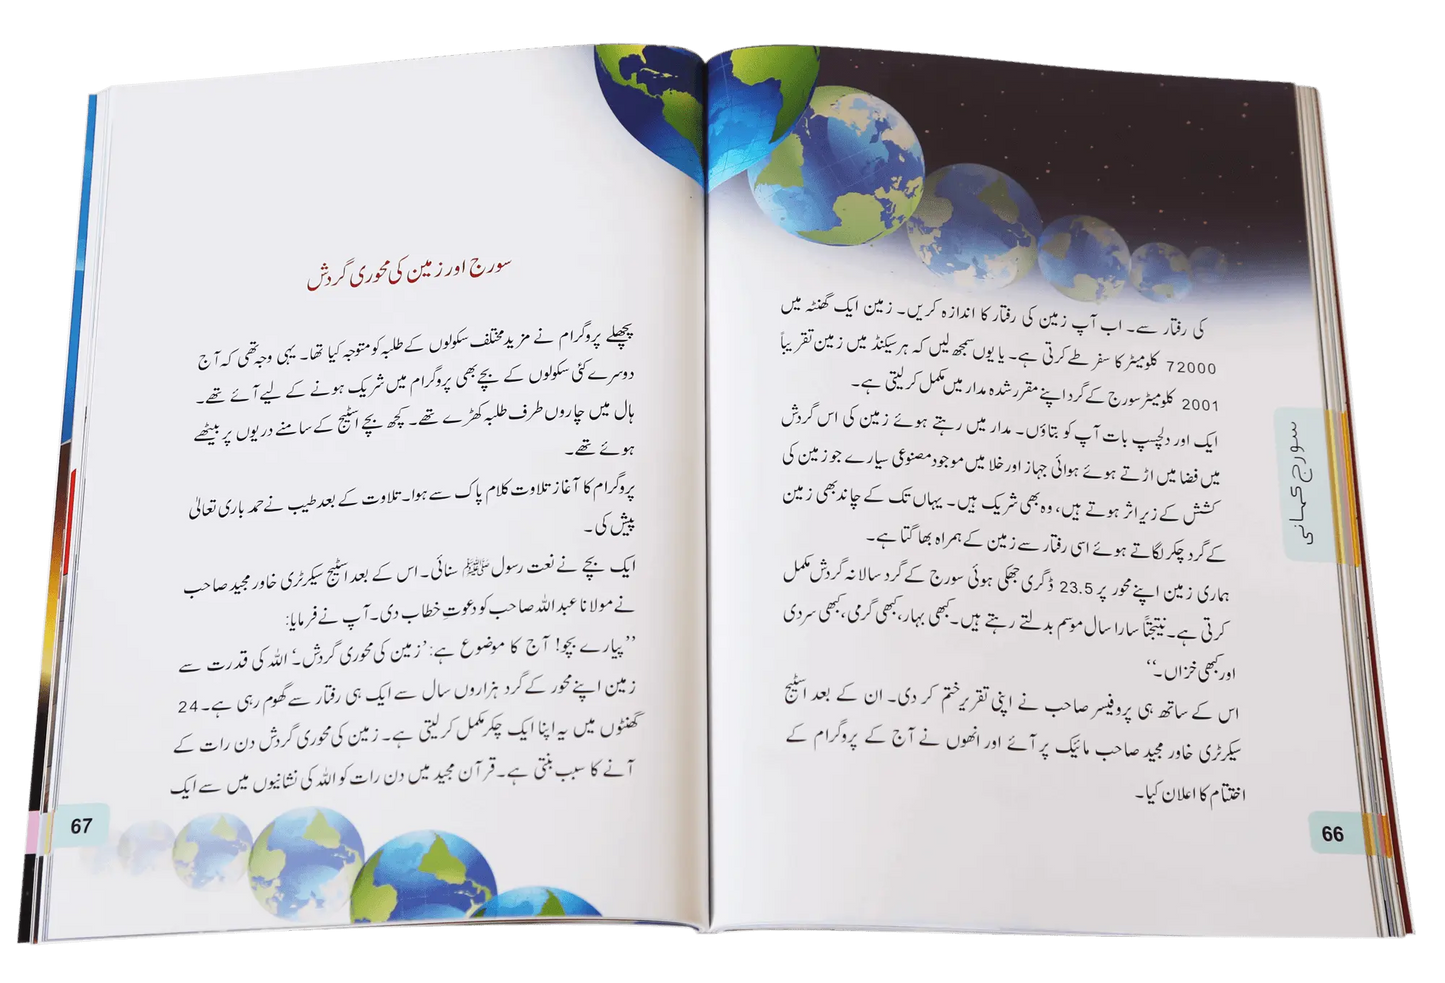 کی رفتار سے۔ اب آپ زمین کی رفتار کا اندازہ کریں۔ زمین ایک گھنٹہ میں
72000 کلومیٹر کا سفر طے کرتی ہے۔ یا یوں سمجھ لیں کہ ہر سیکنڈ میں زمین تقریباً
2001 کلومیٹر سورج کے گرد اپنے مقرر شدہ مدار میں مکمل کر لیتی ہے۔
ایک اور دلچسپ بات آپ کو بتاؤں۔ مدار میں رہتے ہوئے زمین کی اس گردش
میں فضا میں اڑتے ہوئے ہوائی جہاز اور خلا میں موجود مصنوعی سیارے جو زمین کی
کشش کے زیر اثر ہوتے ہیں، وہ بھی شریک ہیں۔ یہاں تک کے چاند بھی زمین
کے گرد چکر لگاتے ہوئے اسی رفتار سے زمین کے ہمراہ بھاگتا ہے۔
ہماری زمین اپنے محور پر 23.5 ڈگری جھکی ہوئی سورج کے گرد سالانہ گردش مکمل
کرتی ہے۔ نتیجتاً سارا سال موسم بدلتے رہتے ہیں۔ کبھی بہار، کبھی گرمی، کبھی سردی
اور کبھی خزاں۔“
اس کے ساتھ ہی پروفیسر صاحب نے اپنی تقریر ختم کر دی۔ ان کے بعد اسٹیج
سیکرٹری خاور مجید صاحب مائیک پر آئے اور انھوں نے آج کے پروگرام کے
اختتام کا اعلان کیا۔
سورج کہانی
66
سورج اور زمین کی محوری گردش
پچھلے پروگرام نے مزید مختلف سکولوں کے طلبہ کو متوجہ کیا تھا۔ یہی وجہ تھی کہ آج
دوسرے کئی سکولوں کے بچے بھی پروگرام میں شریک ہونے کے لیے آئے تھے۔
ہال میں چاروں طرف طلبہ کھڑے تھے۔ کچھ بچے اسٹیج کے سامنے دریوں پر بیٹھے
ہوئے تھے۔
پروگرام کا آغاز تلاوت کلام پاک سے ہوا۔ تلاوت کے بعد طیب نے حمد باری تعالیٰ
پیش کی۔
ایک بچے نے نعت رسول ﷺ سنائی۔ اس کے بعد اسٹیج سیکرٹری خاور مجید صاحب
نے مولانا عبداللہ صاحب کو دعوتِ خطاب دی۔ آپ نے فرمایا:
”پیارے بچو! آج کا موضوع ہے: ’زمین کی محوری گردش۔‘ اللہ کی قدرت سے
زمین اپنے محور کے گرد ہزاروں سال سے ایک ہی رفتار سے گھوم رہی ہے۔ 24
گھنٹوں میں یہ اپنا ایک چکر مکمل کر لیتی ہے۔ زمین کی محوری گردش دن رات کے
آنے کا سبب بنتی ہے۔ قرآن مجید میں دن رات کو اللہ کی نشانیوں میں سے ایک
67